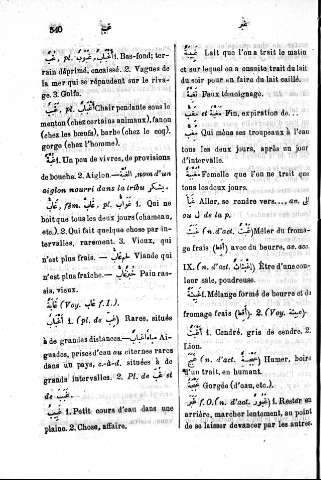 540
غب
غبر
غُبٌّ, pl. غُبُوبٌ, أَغْبَابٌ 1. Bas-fond; ter-
rain déprimé, encaissé. 2. Vagues de
la mer qui se répandent sur le riva-
ge. 3. Golfe.
غَبَبٌ, pl. أَغْبَابٌ Chair pendante sous le
menton (certains animaux), fanon
(chez les bœufs), barbe (chez le coq),
gorge (chez l'homme).
1. Un peu de vivres, de provisions
de bouche. 2. Aiglon. nom d'un
aiglon nourri dans la tribu يشكر
غَابٌّ, fém. غَابَّةٌ, pl. 1. Qui ne
boit que tous les deux jours (chameau,
etc.). 2. Qui fait quelque chose par in-
tervalles, rarement. 3. Vieux, qui
n'est plus frais. — Viande qui
n'est plus fraîche. — Pain ras-
sis, vieux.
(Voy. غب f. I.).
أَغْبَابٌ 1. (pl. de غب) Rares, situés
à de grandes distances. Ai-
guades, prises d'eau ou citernes rares
dans un pays, c.-à-d. situées à de
grands intervalles. 2. Pl. de غب et
de غبب.
1. Petit cours d'eau dans une
plaine. 2. Chose, affaire.
Lait que l'on a trait le matin
et sur lequel on a ensuite trait du lait
du soir pour en faire du lait caillé.
Faux témoignage.
Fin, expiration de...
Qui mène ses troupeaux à l'eau
tous les deux jours, après un jour
d'intervalle.
Femelle que l'on ne trait que
tous les deux jours.
Aller, se rendre vers..., ac. ل
ou د de la p.
غَبَثَ (n. d'act. غَبْثٌ) Mêler du froma-
ge frais (أقط) avec du beurre, ac. acc.
IX. (n. d'act. اغبثاث) Être d'une cou-
leur sale, poudreuse.
غَبِيثَةٌ 1. Mélange formé de beurre et de
fromage frais (أقط). 2. (Voy. ).
أَغْبَثُ 1. Cendré, gris de cendre. 2.
Lion.
غَبَجَ (n. d'act. ) Humer, boire
d'un trait, en humant.
غُبْجَةٌ Gorgée (d'eau, etc.).
غَبَرَ f. O. (n. d'act. غُبُورٌ) 1. Rester en
arrière, marcher lentement, au point
de se laisser devancer par les autres.